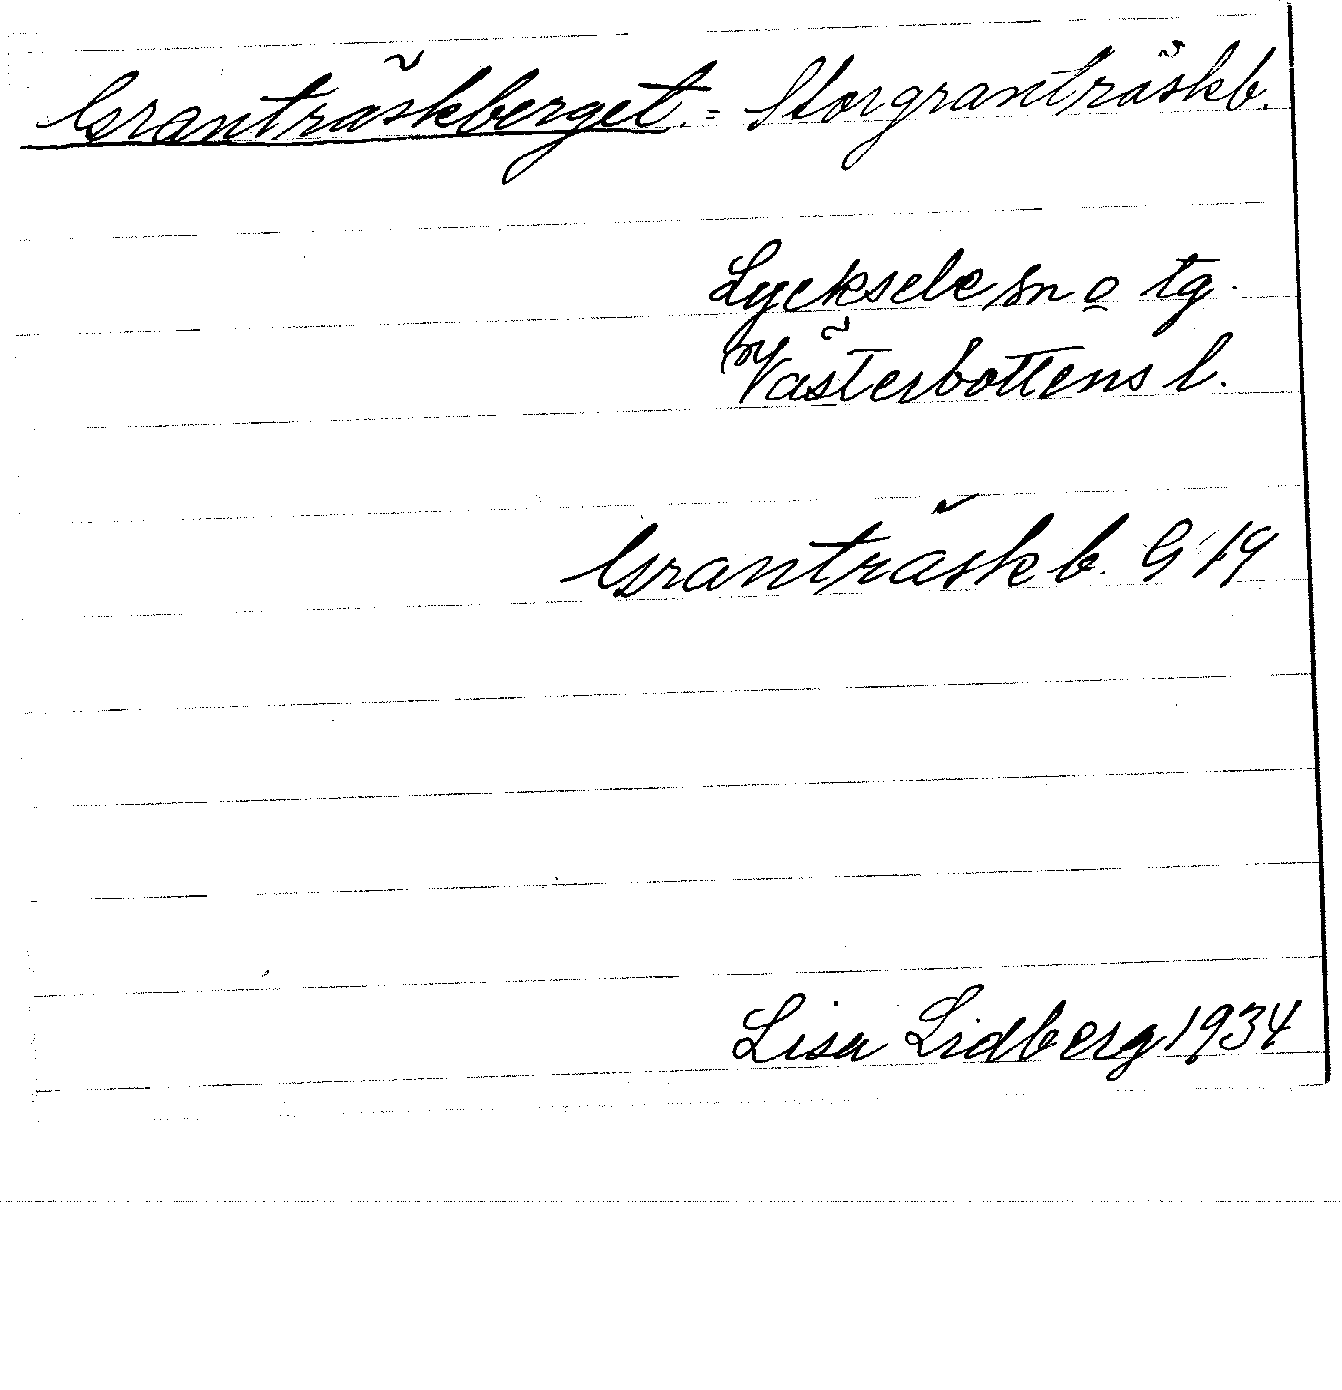 Granträskberget. = Storgranträskb.
Lycksele sn o tg.
Västerbottens l.
Granträskb. G 19
Lisa Lidberg 1934